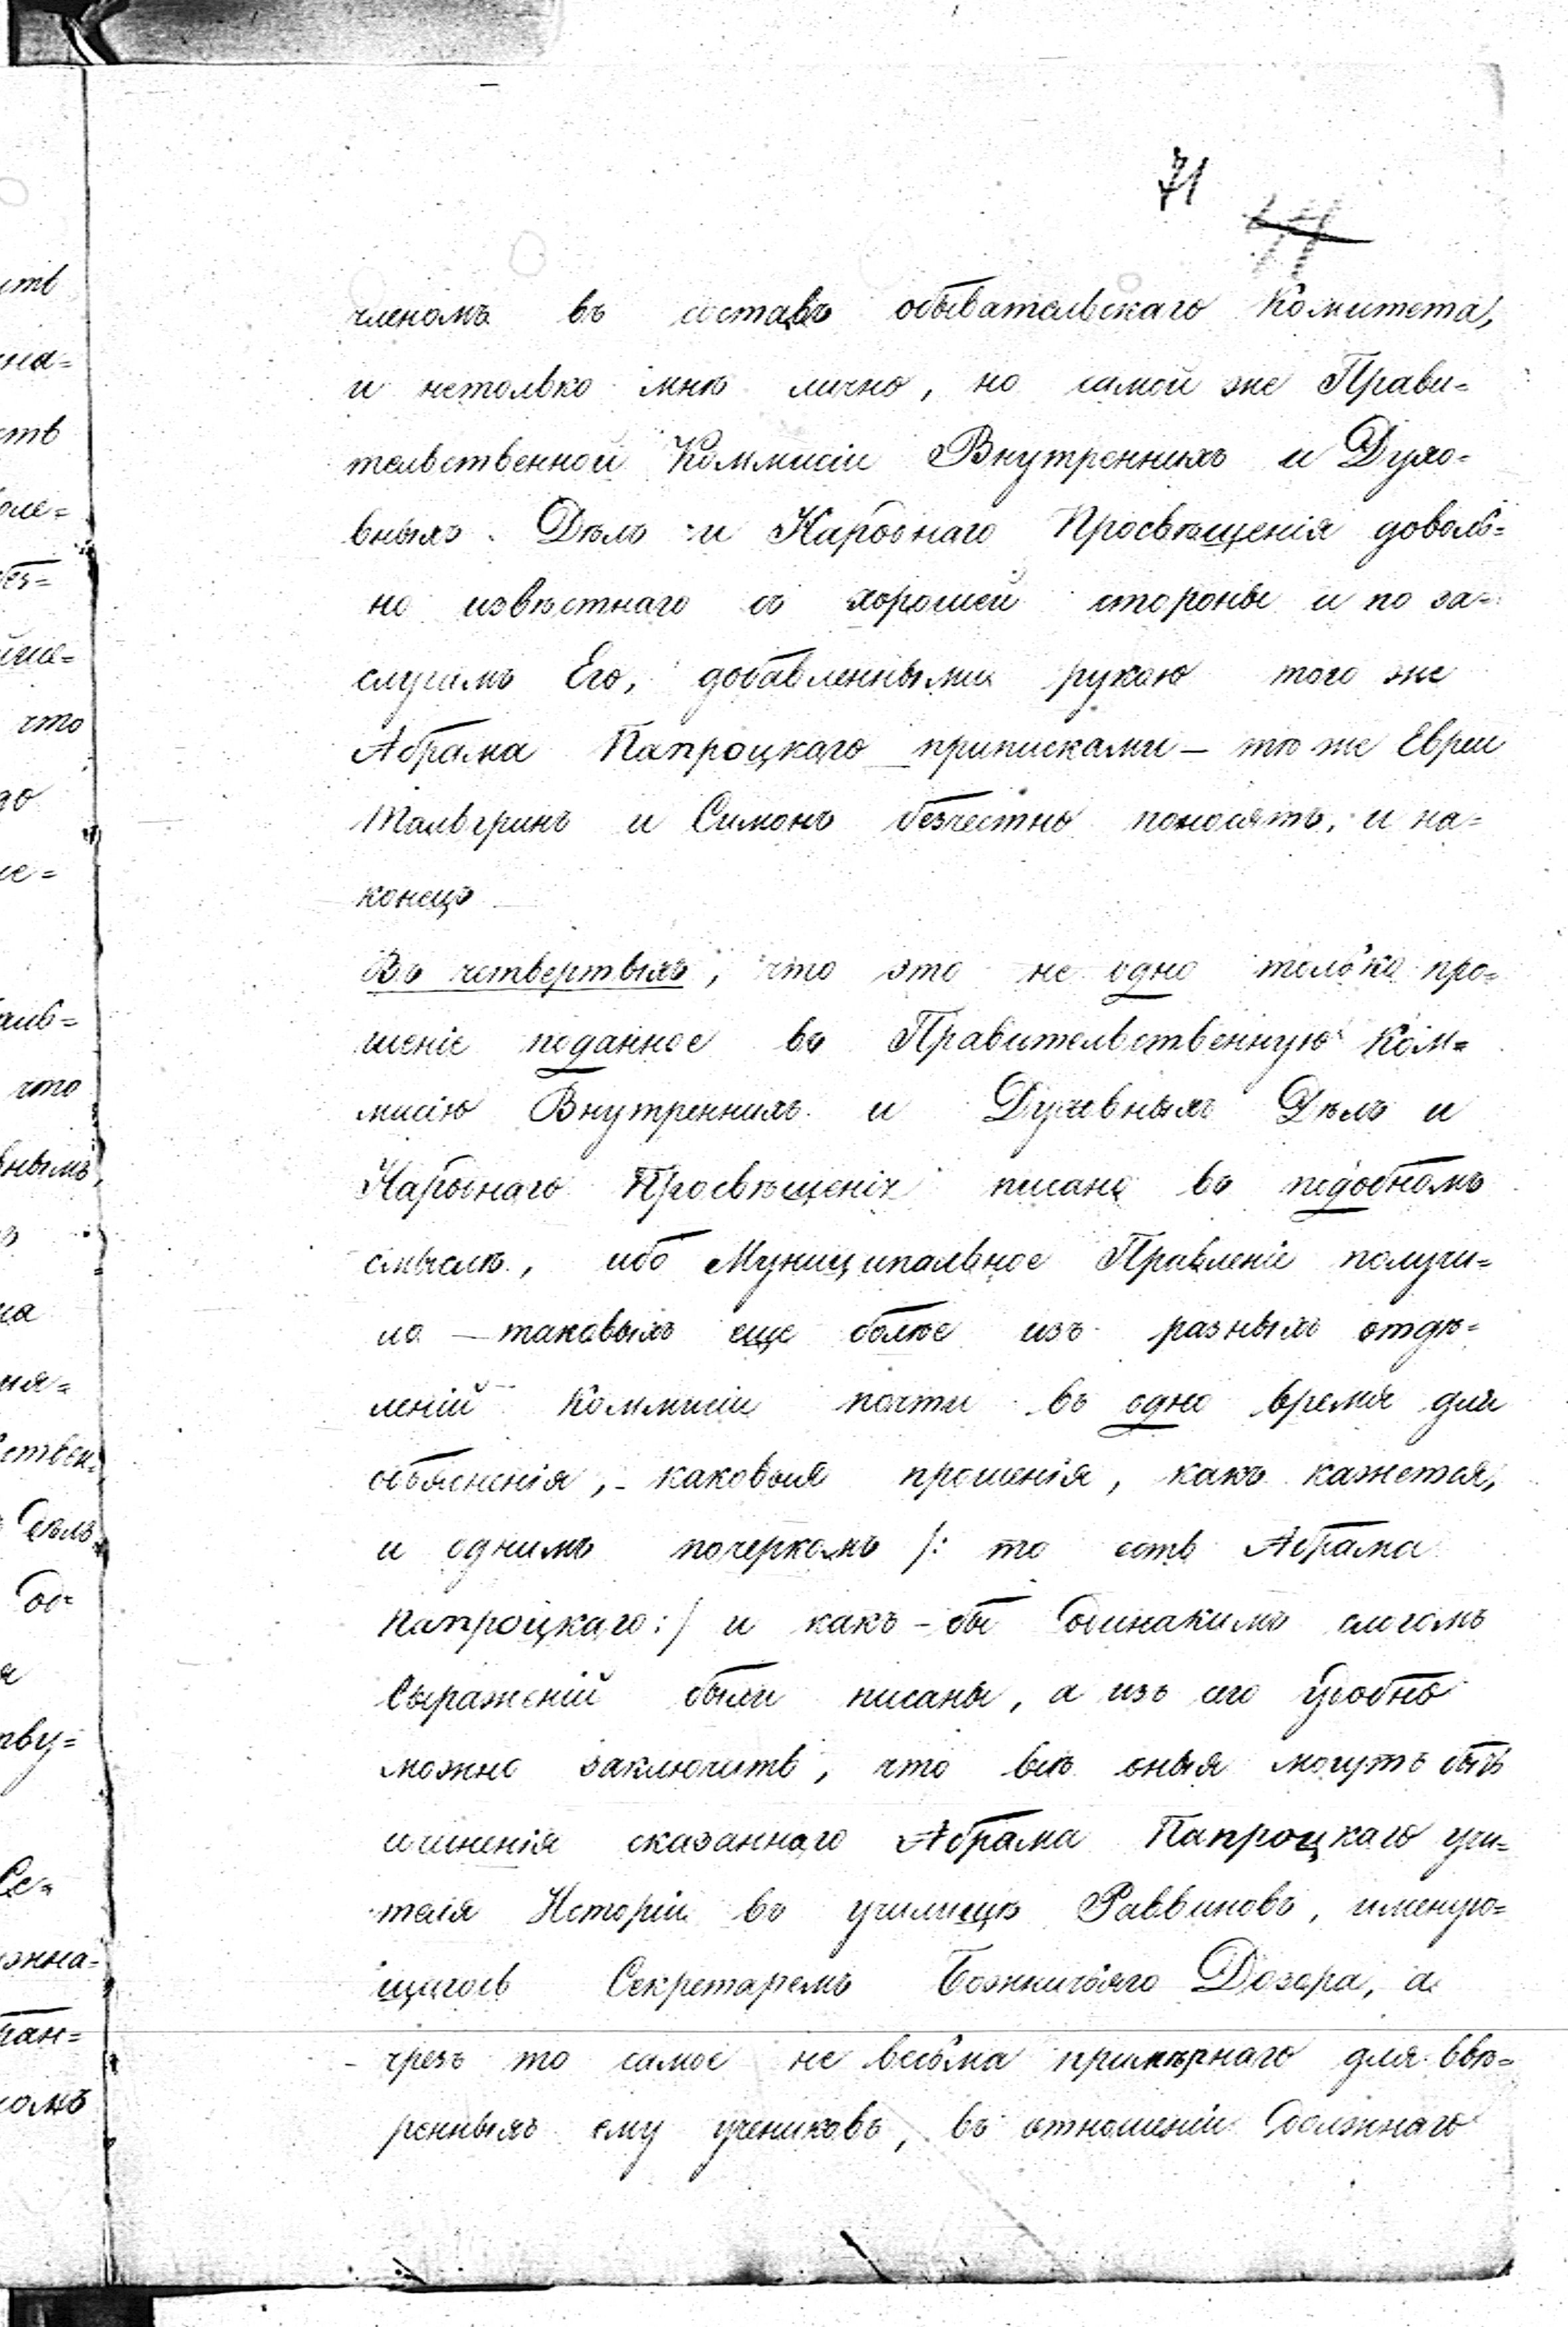 71
членомъ въ составъ обывательскаго Комитета,
и нетолько мнѣ лично, но самой же Прави=
тельственной Коммисіи Внутреннихъ и Духо=
вныхъ Дѣлъ и Народнаго Просвѣщенія доволь=
но извѣстнаго съ хорошей стороны и по за=
слугамъ Его, добавленными рукою того же
Абрама Папроцкаго приписками — тѣ же Евреи
и Симонъ безчестно поносятъ, и на=
конецъ
Въ четвертыхъ, что это не одно только про=
шеніе поданное въ Правительственную Ком=
мисію Внутреннихъ и Духовныхъ Дѣлъ и
Народнаго Просвѣщенія писано въ подобномъ
смыслѣ, ибо Муниципальное Правленіе получи=
ло таковыхъ еще болѣе изъ разныхъ отдѣ=
леній Коммисіи почти въ одно время для
объясненія, каковыя прошенія, какъ кажется,
и однимъ почеркомъ /: то есть Абрама
Папроцкаго :/ и какъ-бы одинакимъ слогомъ
выраженій были писаны, а изъ сего удобно
можно заключить, что всѣ оныя могутъ быть
сочиненія сказаннаго Абрама Папроцкаго учи=
теля Исторіи въ училищѣ Раввиновъ, именую=
щагось Секретаремъ Божничьяго Дозора, а
чрезъ то самое не весьма примѣрнаго для ввѣ=
ренныхъ ему учениковъ, въ отношеніи должнаго